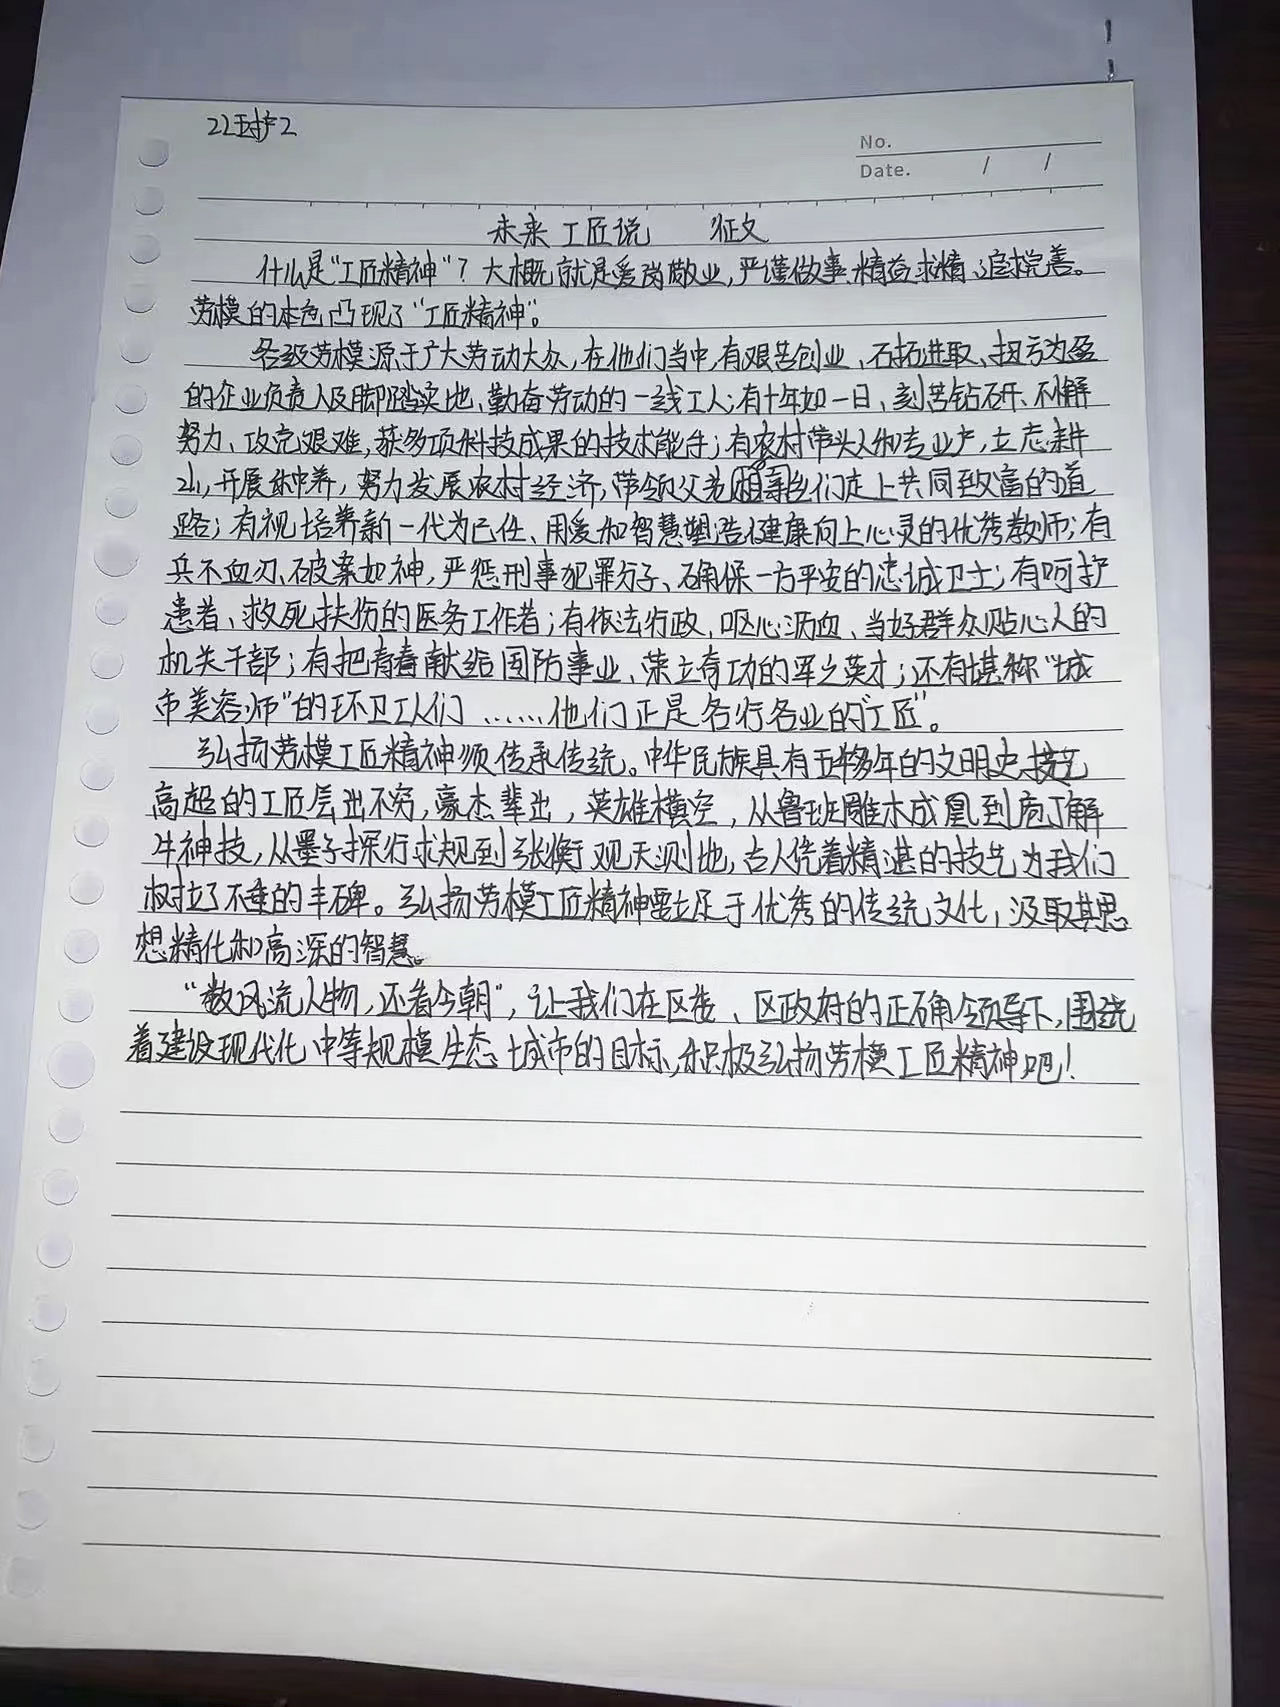 22护2
No.
Date. / /
未来工匠说 征文
什么是"工匠精神"？大概就是爱岗敬业，严谨做事、精益求精、追求完善。
劳模的本色凸现了"工匠精神"。
各级劳模源于广大劳动大众，在他们当中，有艰苦创业、开拓进取、扭亏为盈
的企业负责人及脚踏实地、勤奋劳动的一线工人；有十年如一日、刻苦钻研、不懈
努力、攻克艰难，获多项科技成果的技术能手；有农村带头人和专业户，立志耕
山，开展种养，努力发展农村经济，带领父老乡亲们走上共同致富的道
路；有视培养新一代为己任、用爱和智慧塑造健康向上心灵的优秀教师；有
兵不血刃、破案如神，严惩刑事犯罪分子、确保一方平安的忠诚卫士；有呵护
患者、救死扶伤的医务工作者；有依法行政、呕心沥血、当好群众贴心人的
机关干部；有把青春献给国防事业、荣立奇功的军之英才；还有堪称"城
市美容师"的环卫工人们……他们正是各行各业的"工匠"。
弘扬劳模工匠精神须传承传统。中华民族具有五千多年的文明史，技艺
高超的工匠层出不穷，豪杰辈出，英雄横空，从鲁班雕木成凰到庖丁解
牛神技，从墨子探行求规到张衡观天测地，古人凭着精湛的技艺为我们
树立了不垂的丰碑。弘扬劳模工匠精神要立足于优秀的传统文化，汲取其思
想精化和高深的智慧。
"数风流人物，还看今朝"，让我们在区委、区政府的正确领导下，围绕
着建设现代化中等规模生态城市的目标，积极弘扬劳模工匠精神吧！